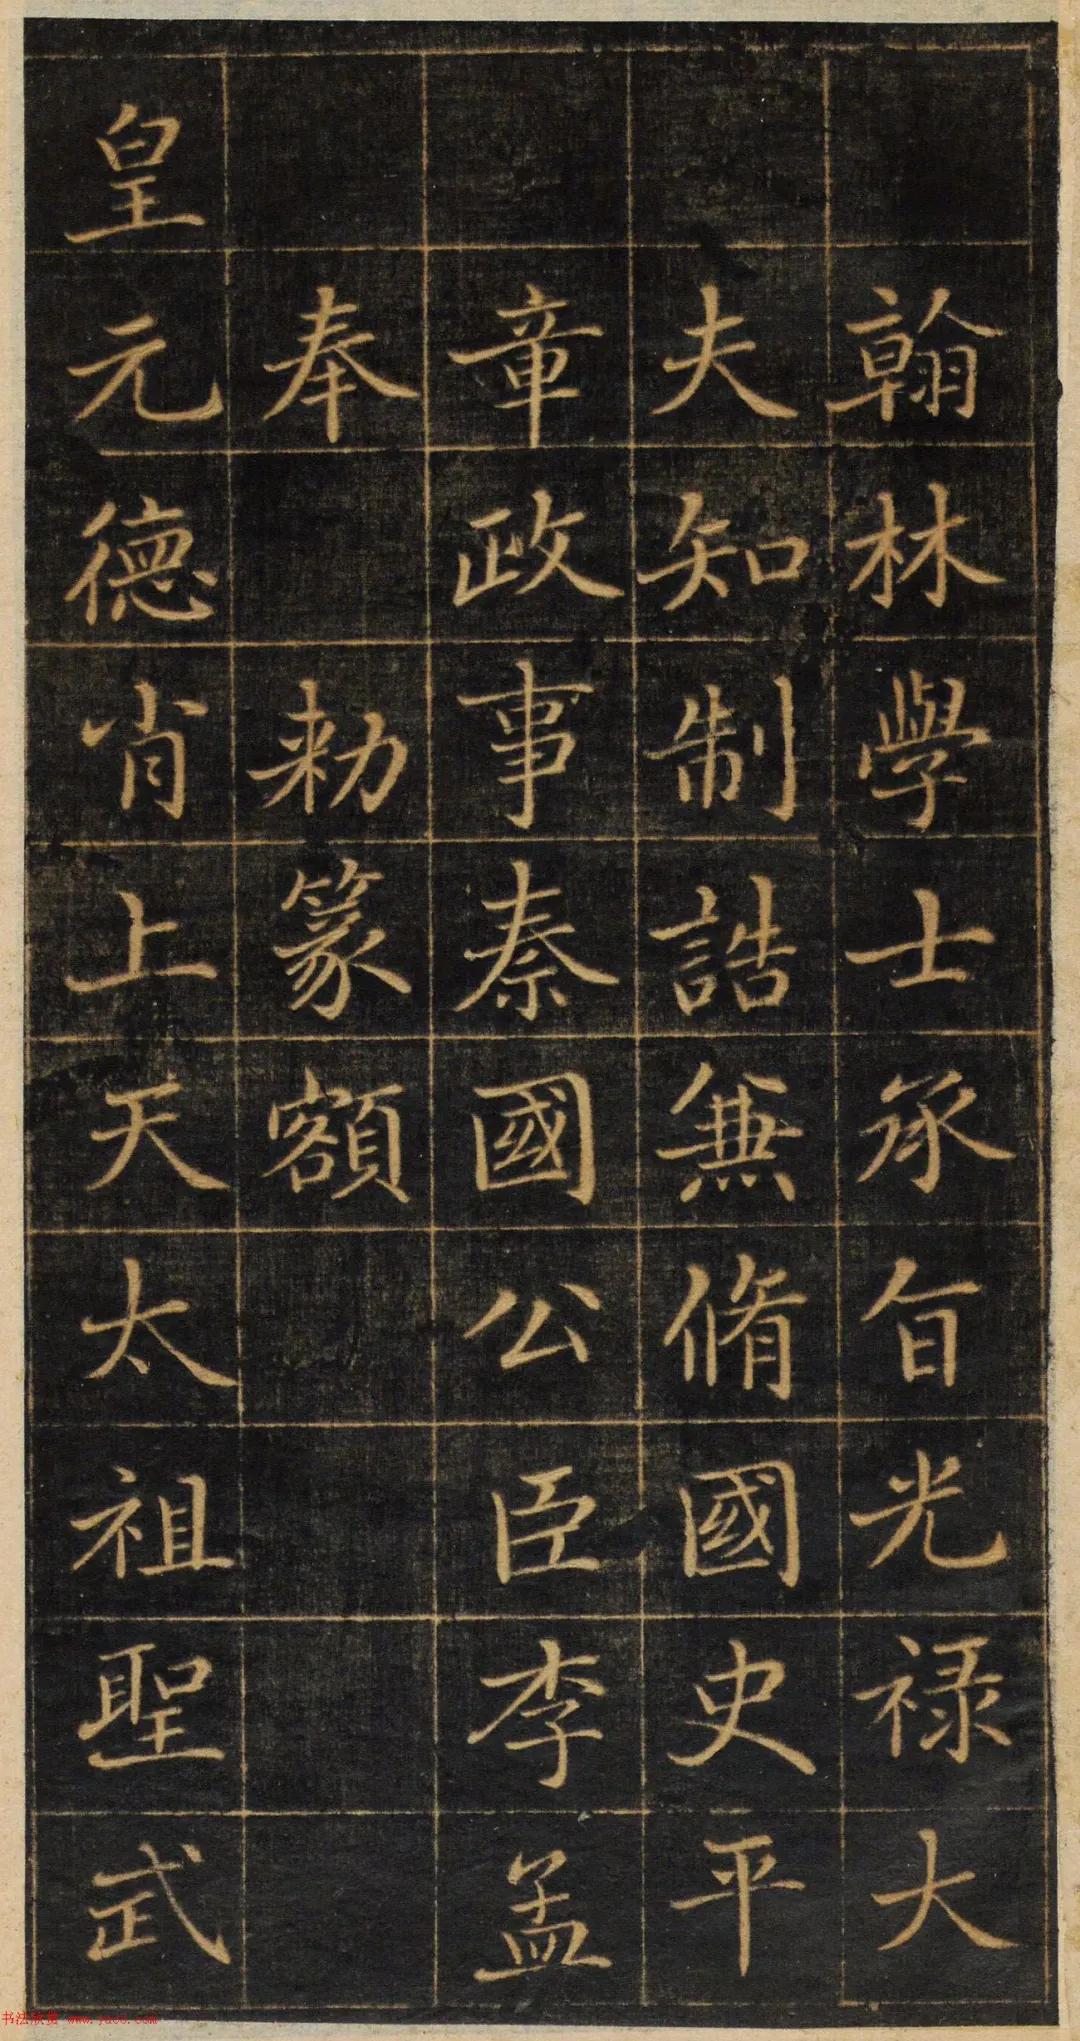 翰林學士承旨光祿大
夫知制誥兼脩國史平
章政事秦國公臣李孟
奉 勑篆額
皇元德肖上天太祖聖武
书法欣赏 www.yac8.com